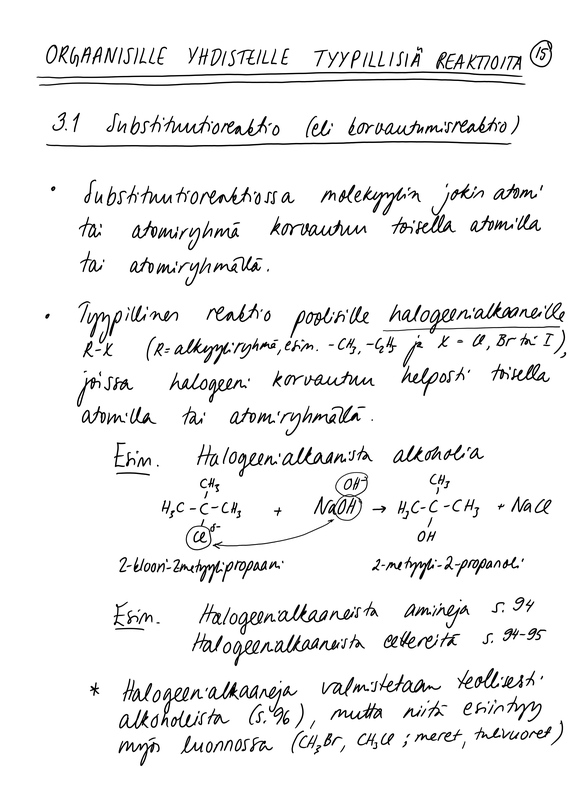 ORGAANISILLE YHDISTEILLE TYYPILLISIÄ REAKTIOITA 15
3.1 Substituutioreaktio (eli korvautumisreaktio)
• Substituutioreaktiossa molekyylin jokin atomi
tai atomiryhmä korvautuu toisella atomilla
tai atomiryhmällä.
• Tyypillinen reaktio poolisille halogeenialkaaneille
R-X (R= alkyyliryhmä, esim. -CH₃, -C₂H₅ ja X = Cl, Br tai I),
joissa halogeeni korvautuu helposti toisella
atomilla tai atomiryhmällä.
Esim. Halogeenialkaanista alkoholia
CH₃ OH⁻ CH₃
H₃C - C - CH₃ + NaOH → H₃C - C - CH₃ + NaCl
Cl δ- OH
2-kloori-2metyylipropaani 2-metyyli-2-propanoli
Esim. Halogeenialkaaneista amineja s. 94
Halogeenialkaaneista eettereitä s. 94-95
* Halogeenialkaaneja valmistetaan teollisesti
alkoholeista (s. 96), mutta niitä esiintyy
myös luonnossa (CH₃Br, CH₃Cl ; meret, tulivuoret)